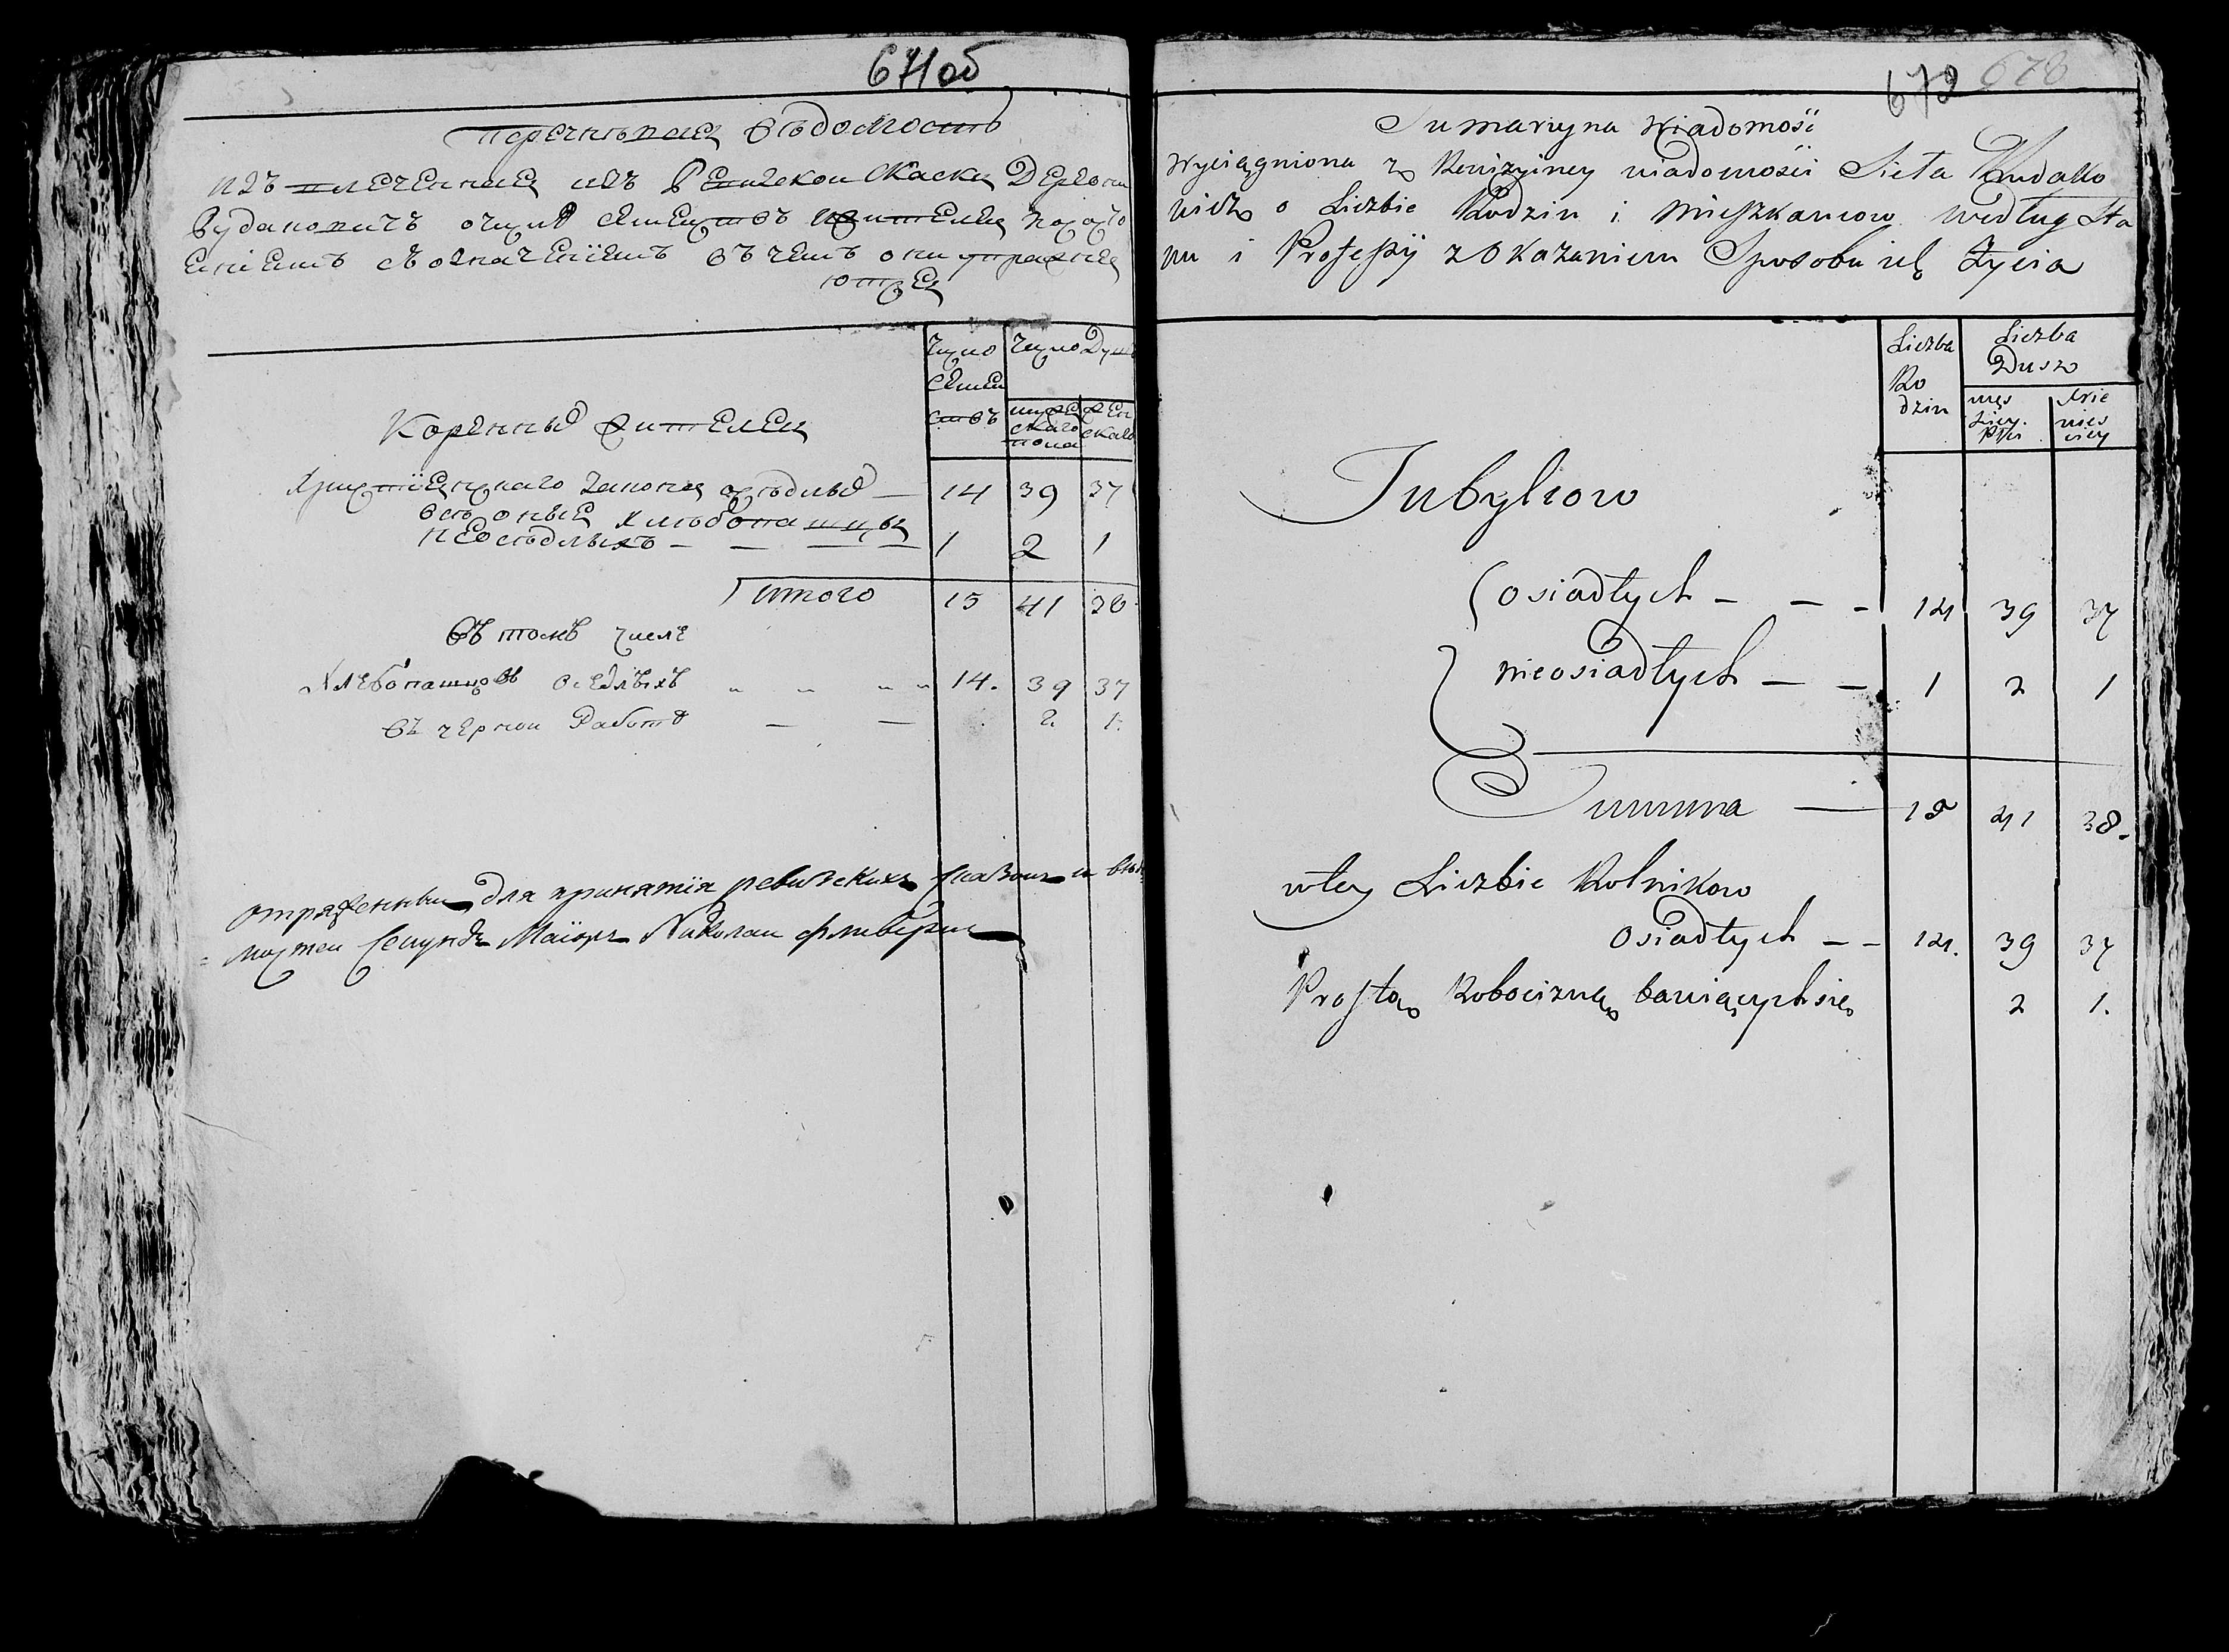 671об
перечневая ведомость
извлеченная изъ Ревизской Скаски Деревни
Рудаковичъ о числѣ семействъ жителей по состо
яніямъ съ означеніемъ въ чемъ они упражня
ются
Число
семей
ствъ
Число Душъ
мужеска
го
пола
жен
скаго
Коренные жители
Христіянскаго закона оседлые — 14 39 37
все оные хлѣбопашцы
неоседлыхъ — — — — 1 2 1
итого 15 41 38
Въ томъ числе
Хлебопашцовъ оседлыхъ „ „ „ „ 14. 39 37
въ черной работѣ — — 2. 1.
отряженный для принятія ревизскихъ сказокъ и вѣдо
мостей Секундъ Маіоръ Николай
672 678
Sumaryyna Wiadomość
Wyciągniona z Rewizyiney wiadomości Sieła Rudako
wicz o Liczbie Rodzin i Mieszkancow według Sta
nu i Professyi z Okazaniem Sposobu ich Życia
Liczba
Ro
dzin
Liczba
Dusz
męs
kiey
Płci
Nie
wies
ciey
Tubylcow
osiadłych — — — 14 39 37
nieosiadłych — — 1 2 1
Summa — 15 41 38.
w tey Liczbie Rolnikow
Osiadłych — — 14. 39 37
Prostą Robocizną bawiących się 2 1.